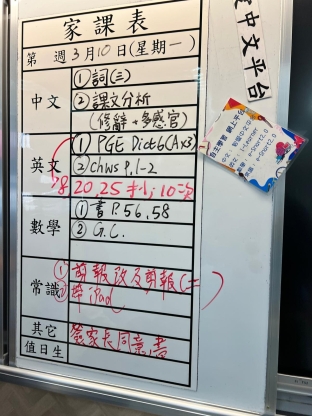 家課表
第 週 3月10日(星期一)
中文
①詞(三)
②課文分析
(修辭+多感官)
英文
① PGE Dict 6 (Ax3)
② Chws P.1-2
20, 25
數學
①書P.56,58
② G.C.
常識
①剪報改及剪報(二)
② iPad
其它
簽家長同意書
值日生
中文平台
自主學習 網上平台